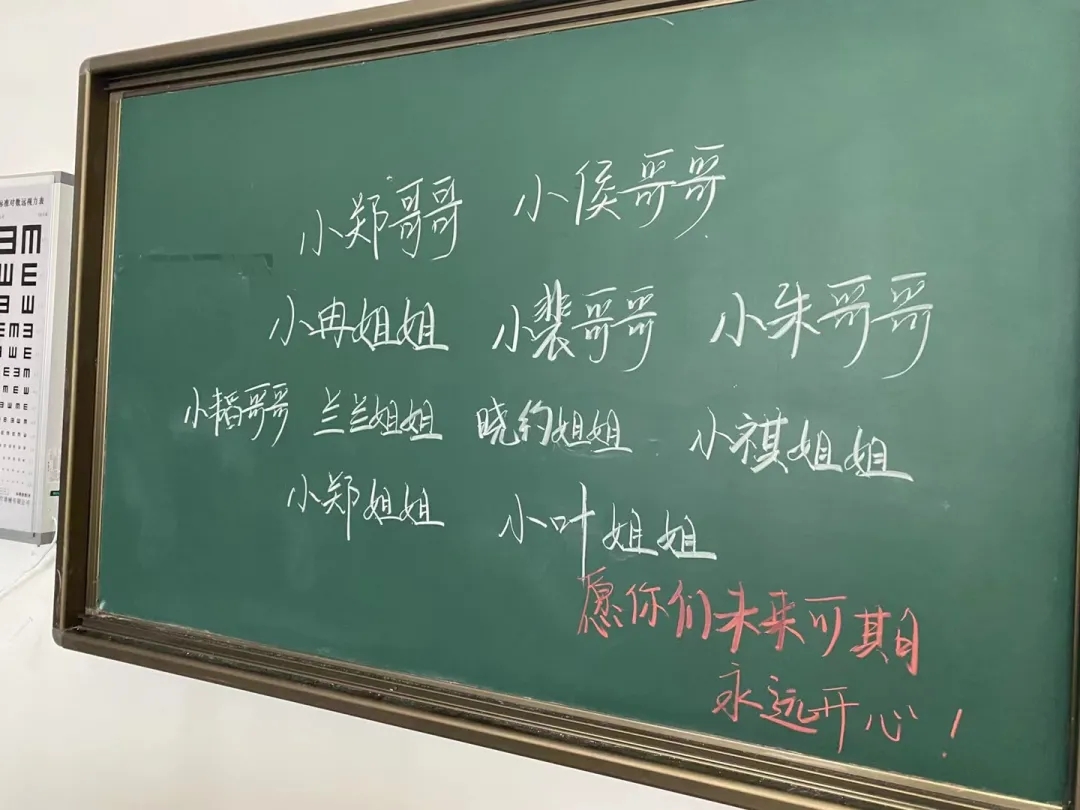 标准对数远视力表
小郑哥哥 小侯哥哥
小冉姐姐 小裴哥哥 小朱哥哥
小韬哥哥 兰兰姐姐 晓约姐姐 小祺姐姐
小郑姐姐 小叶姐姐
愿你们未来可期
永远开心！